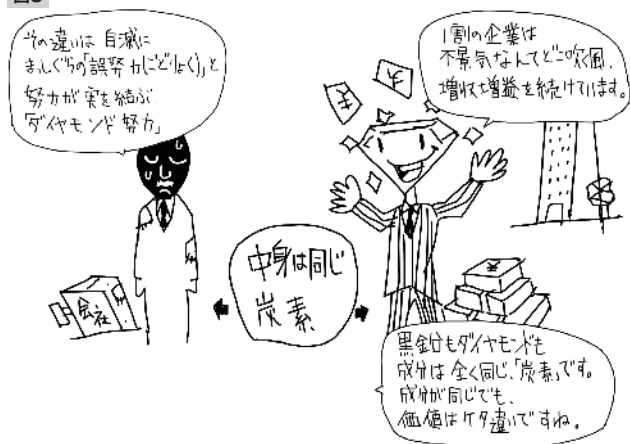 その違いは 自滅に
まっしぐらの「誤努力(ごどりょく)」と
努力が実を結ぶ
「ダイヤモンド努力」
1割の企業は
不景気なんてどこ吹く風、
増収増益を続けています。
¥
¥
¥
会社
中身は同じ
炭素
¥
黒鉛もダイヤモンドも
成分は全く同じ、「炭素」です。
成分が同じでも、
価値はケタ違いですね。